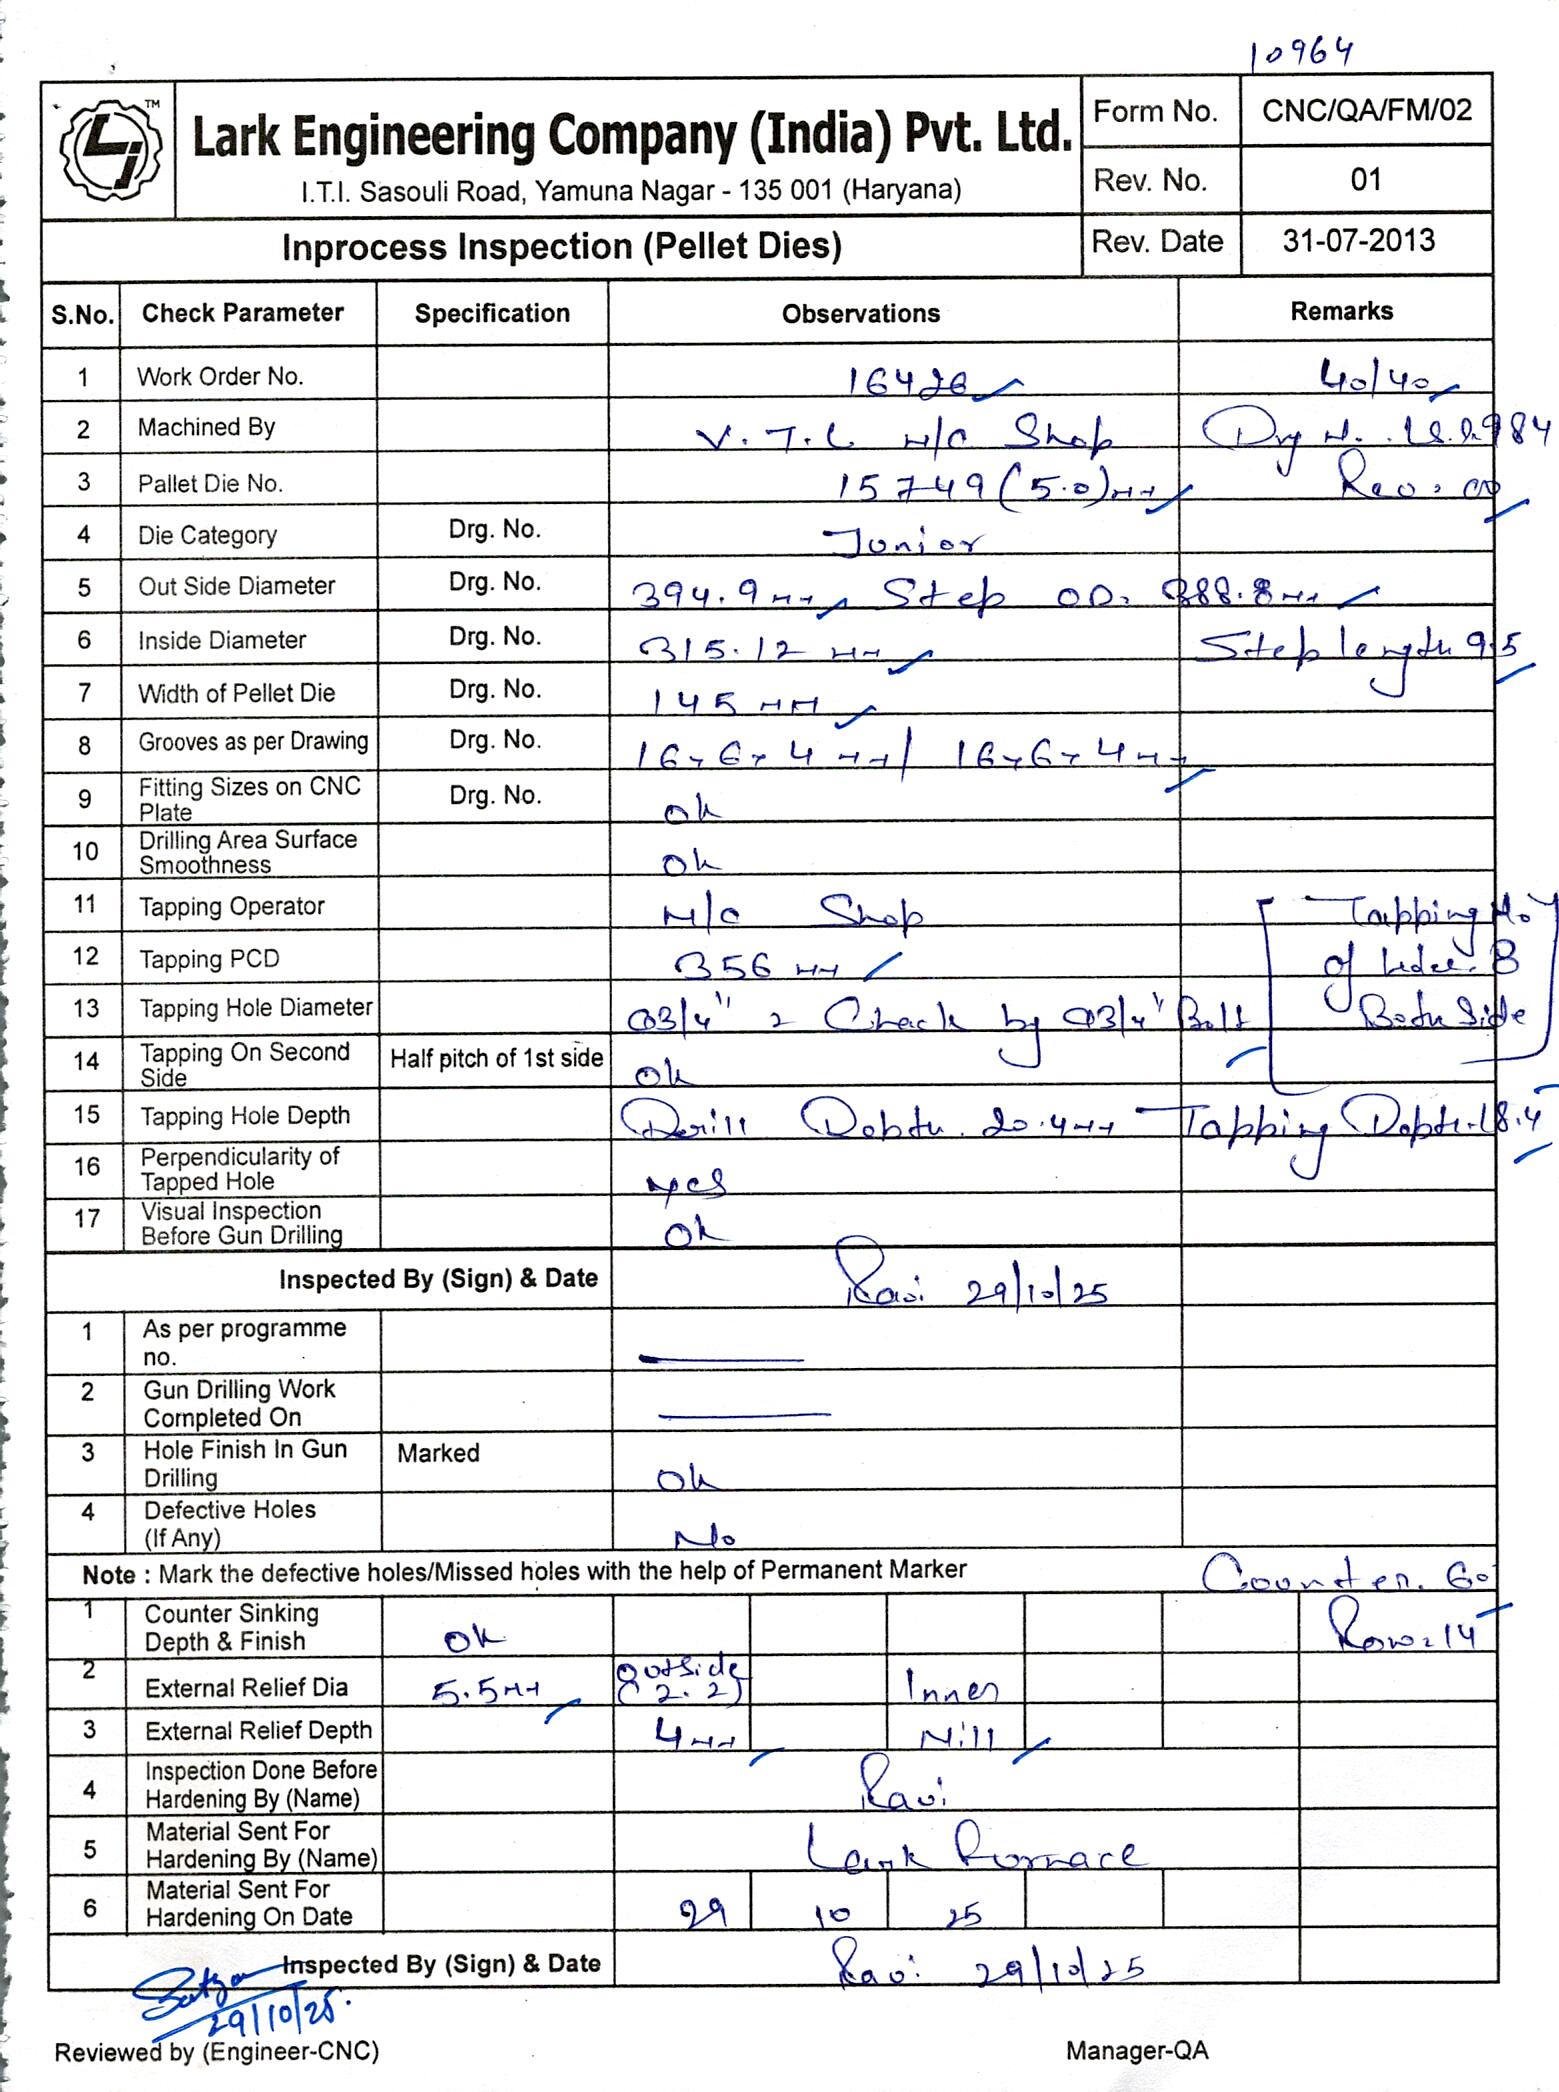 10964
TM
Lark Engineering Company (India) Pvt. Ltd.
I.T.I. Sasouli Road, Yamuna Nagar - 135 001 (Haryana)
Form No. CNC/QA/FM/02
Rev. No. 01
Inprocess Inspection (Pellet Dies)
Rev. Date 31-07-2013
S.No. Check Parameter Specification Observations Remarks
1 Work Order No. 16426 40/40
2 Machined By V.T.L M/C Shop Drg N.
3 Pallet Die No. 15749 (5.0)mm Rev: 00
4 Die Category Drg. No. Junior
5 Out Side Diameter Drg. No. 394.9mm Step OD. 388.8mm
6 Inside Diameter Drg. No. 315.12 mm Step length 9.5
7 Width of Pellet Die Drg. No. 145 mm
8 Grooves as per Drawing Drg. No. 16x6x4 mm / 16x6x4mm
9 Fitting Sizes on CNC Plate Drg. No. ok
10 Drilling Area Surface Smoothness ok
11 Tapping Operator M/C Shop Tapping No.
12 Tapping PCD 356 mm of hole. 8
13 Tapping Hole Diameter Ø3/4" = Check by Ø3/4" Bolt Both Side
14 Tapping On Second Side Half pitch of 1st side ok
15 Tapping Hole Depth Drill Depth. 20.4mm Tapping Depth. 18.4
16 Perpendicularity of Tapped Hole yes
17 Visual Inspection Before Gun Drilling ok
Inspected By (Sign) & Date Ravi 29/10/25
1 As per programme no.
2 Gun Drilling Work Completed On
3 Hole Finish In Gun Drilling Marked ok
4 Defective Holes (If Any) No
Note : Mark the defective holes/Missed holes with the help of Permanent Marker Counter. 60
1 Counter Sinking Depth & Finish ok Row=14
2 External Relief Dia 5.5mm outside (2.2) Inner
3 External Relief Depth 4mm Nill
4 Inspection Done Before Hardening By (Name) Ravi
5 Material Sent For Hardening By (Name) Lark Furnace
6 Material Sent For Hardening On Date 29 10 25
Inspected By (Sign) & Date Ravi 29/10/25
29/10/25.
Reviewed by (Engineer-CNC) Manager-QA